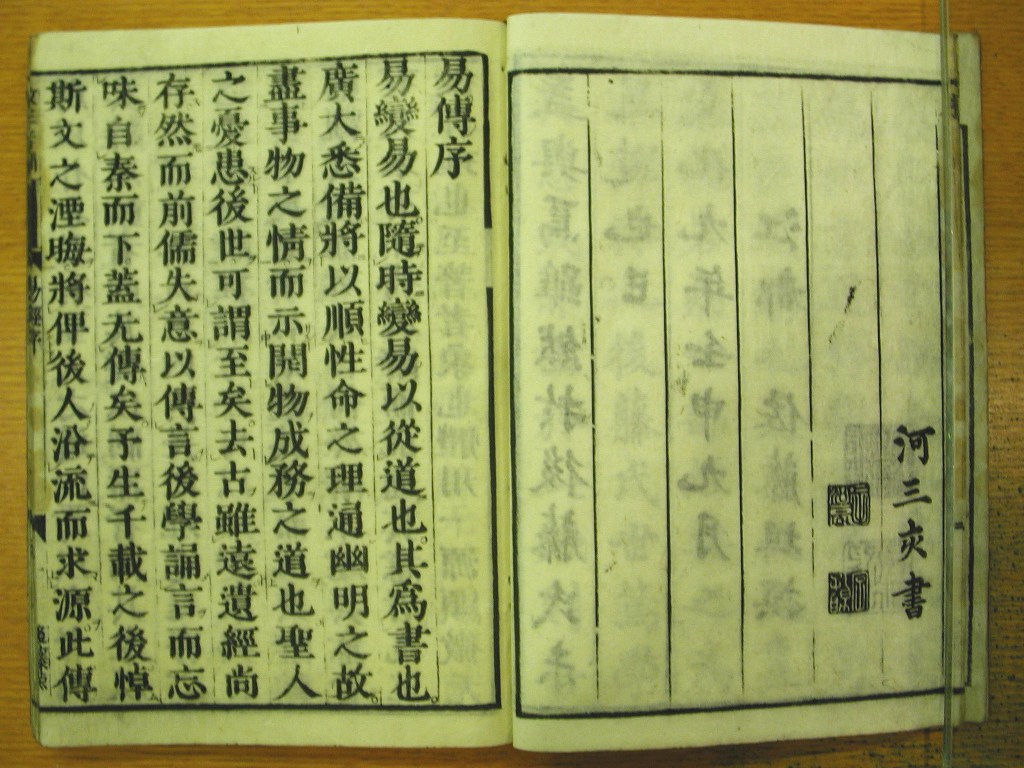 河三亥書
易傳序
易變易也隨時變易以從道也其爲書也
廣大悉備將以順性命之理通幽明之故
盡事物之情而示開物成務之道也聖人
之憂患後世可謂至矣去古雖遠遺經尚
存然而前儒失意以傳言後學誦言而忘
味自秦而下蓋无傳矣予生千載之後悼
斯文之湮晦將俾後人沿流而求源此傳